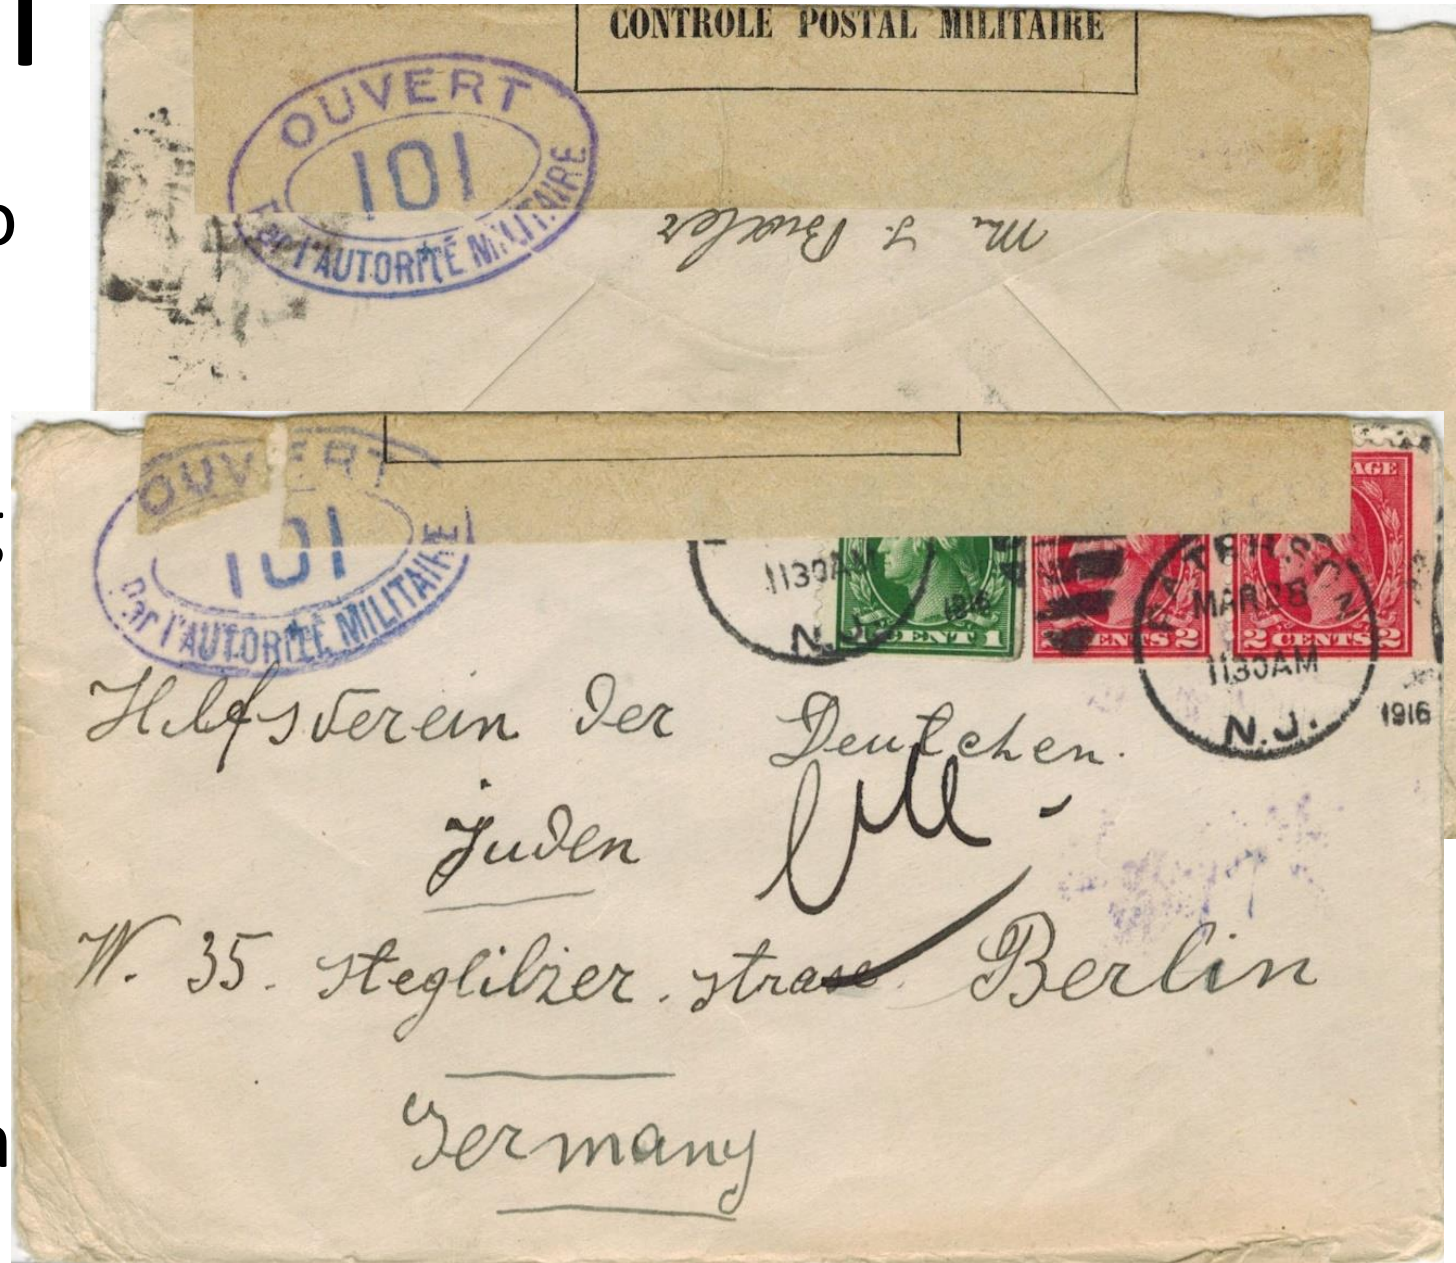 CONTROLE POSTAL MILITAIRE
OUVERT
101
Par l'AUTORITÉ MILITAIRE
M. J. Bixler
OUVERT
101
Par l'AUTORITÉ MILITAIRE
1130AM
N.J.
1916
CENT 1
CENTS 2
AGE
2 CENTS 2
PATERSON
MAR 28
1130AM
N.J.
1916
Hilfsverein der Deutchen.
Juden
W. 35. steglilzer. strase. Berlin
Germany